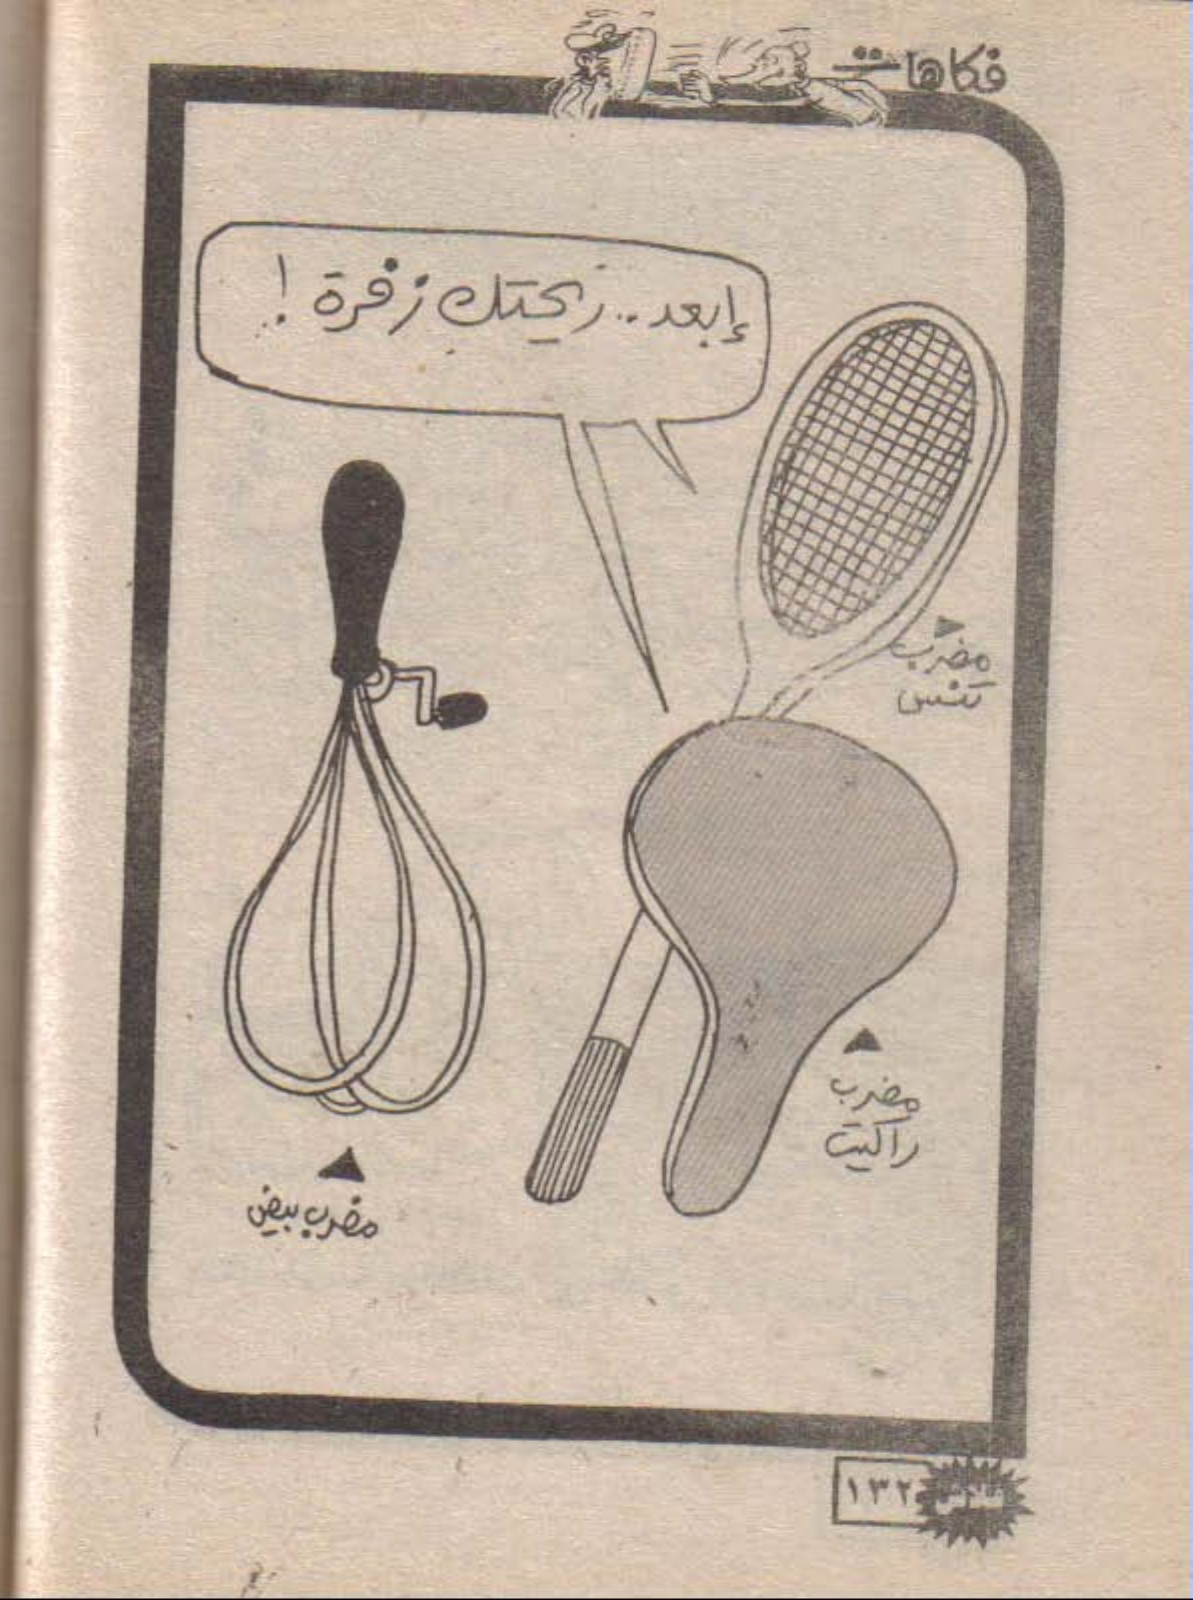 فكاهات
إبعد.. ريحتك زفرة !
مضرب
تنس
مضرب
راكيت
مضرب بيض
١٣٢